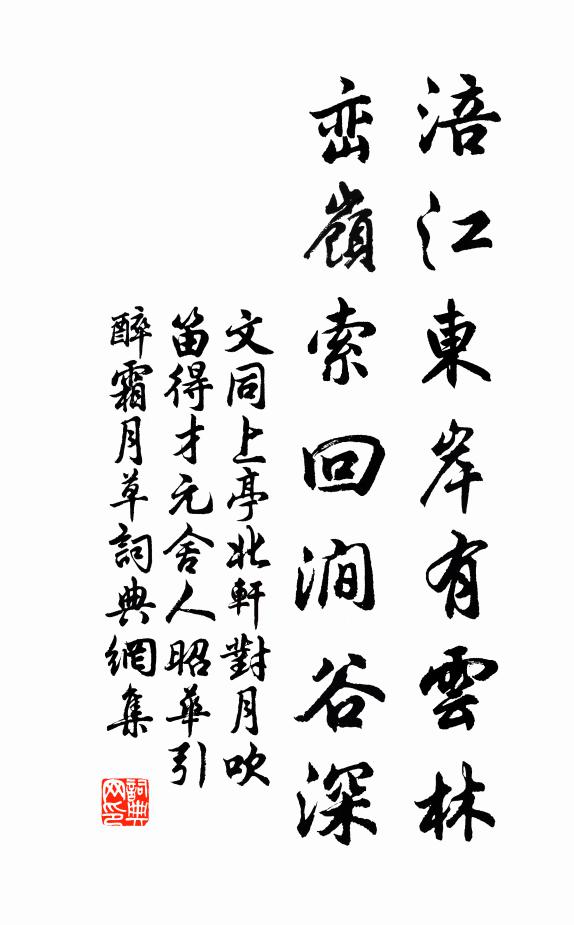 涪江東岸有雲林
巒嶺索回澗谷深
文同上亭北軒對月吹
笛得才元舍人昭華引
醉霜月草詞典網集
詞典网印